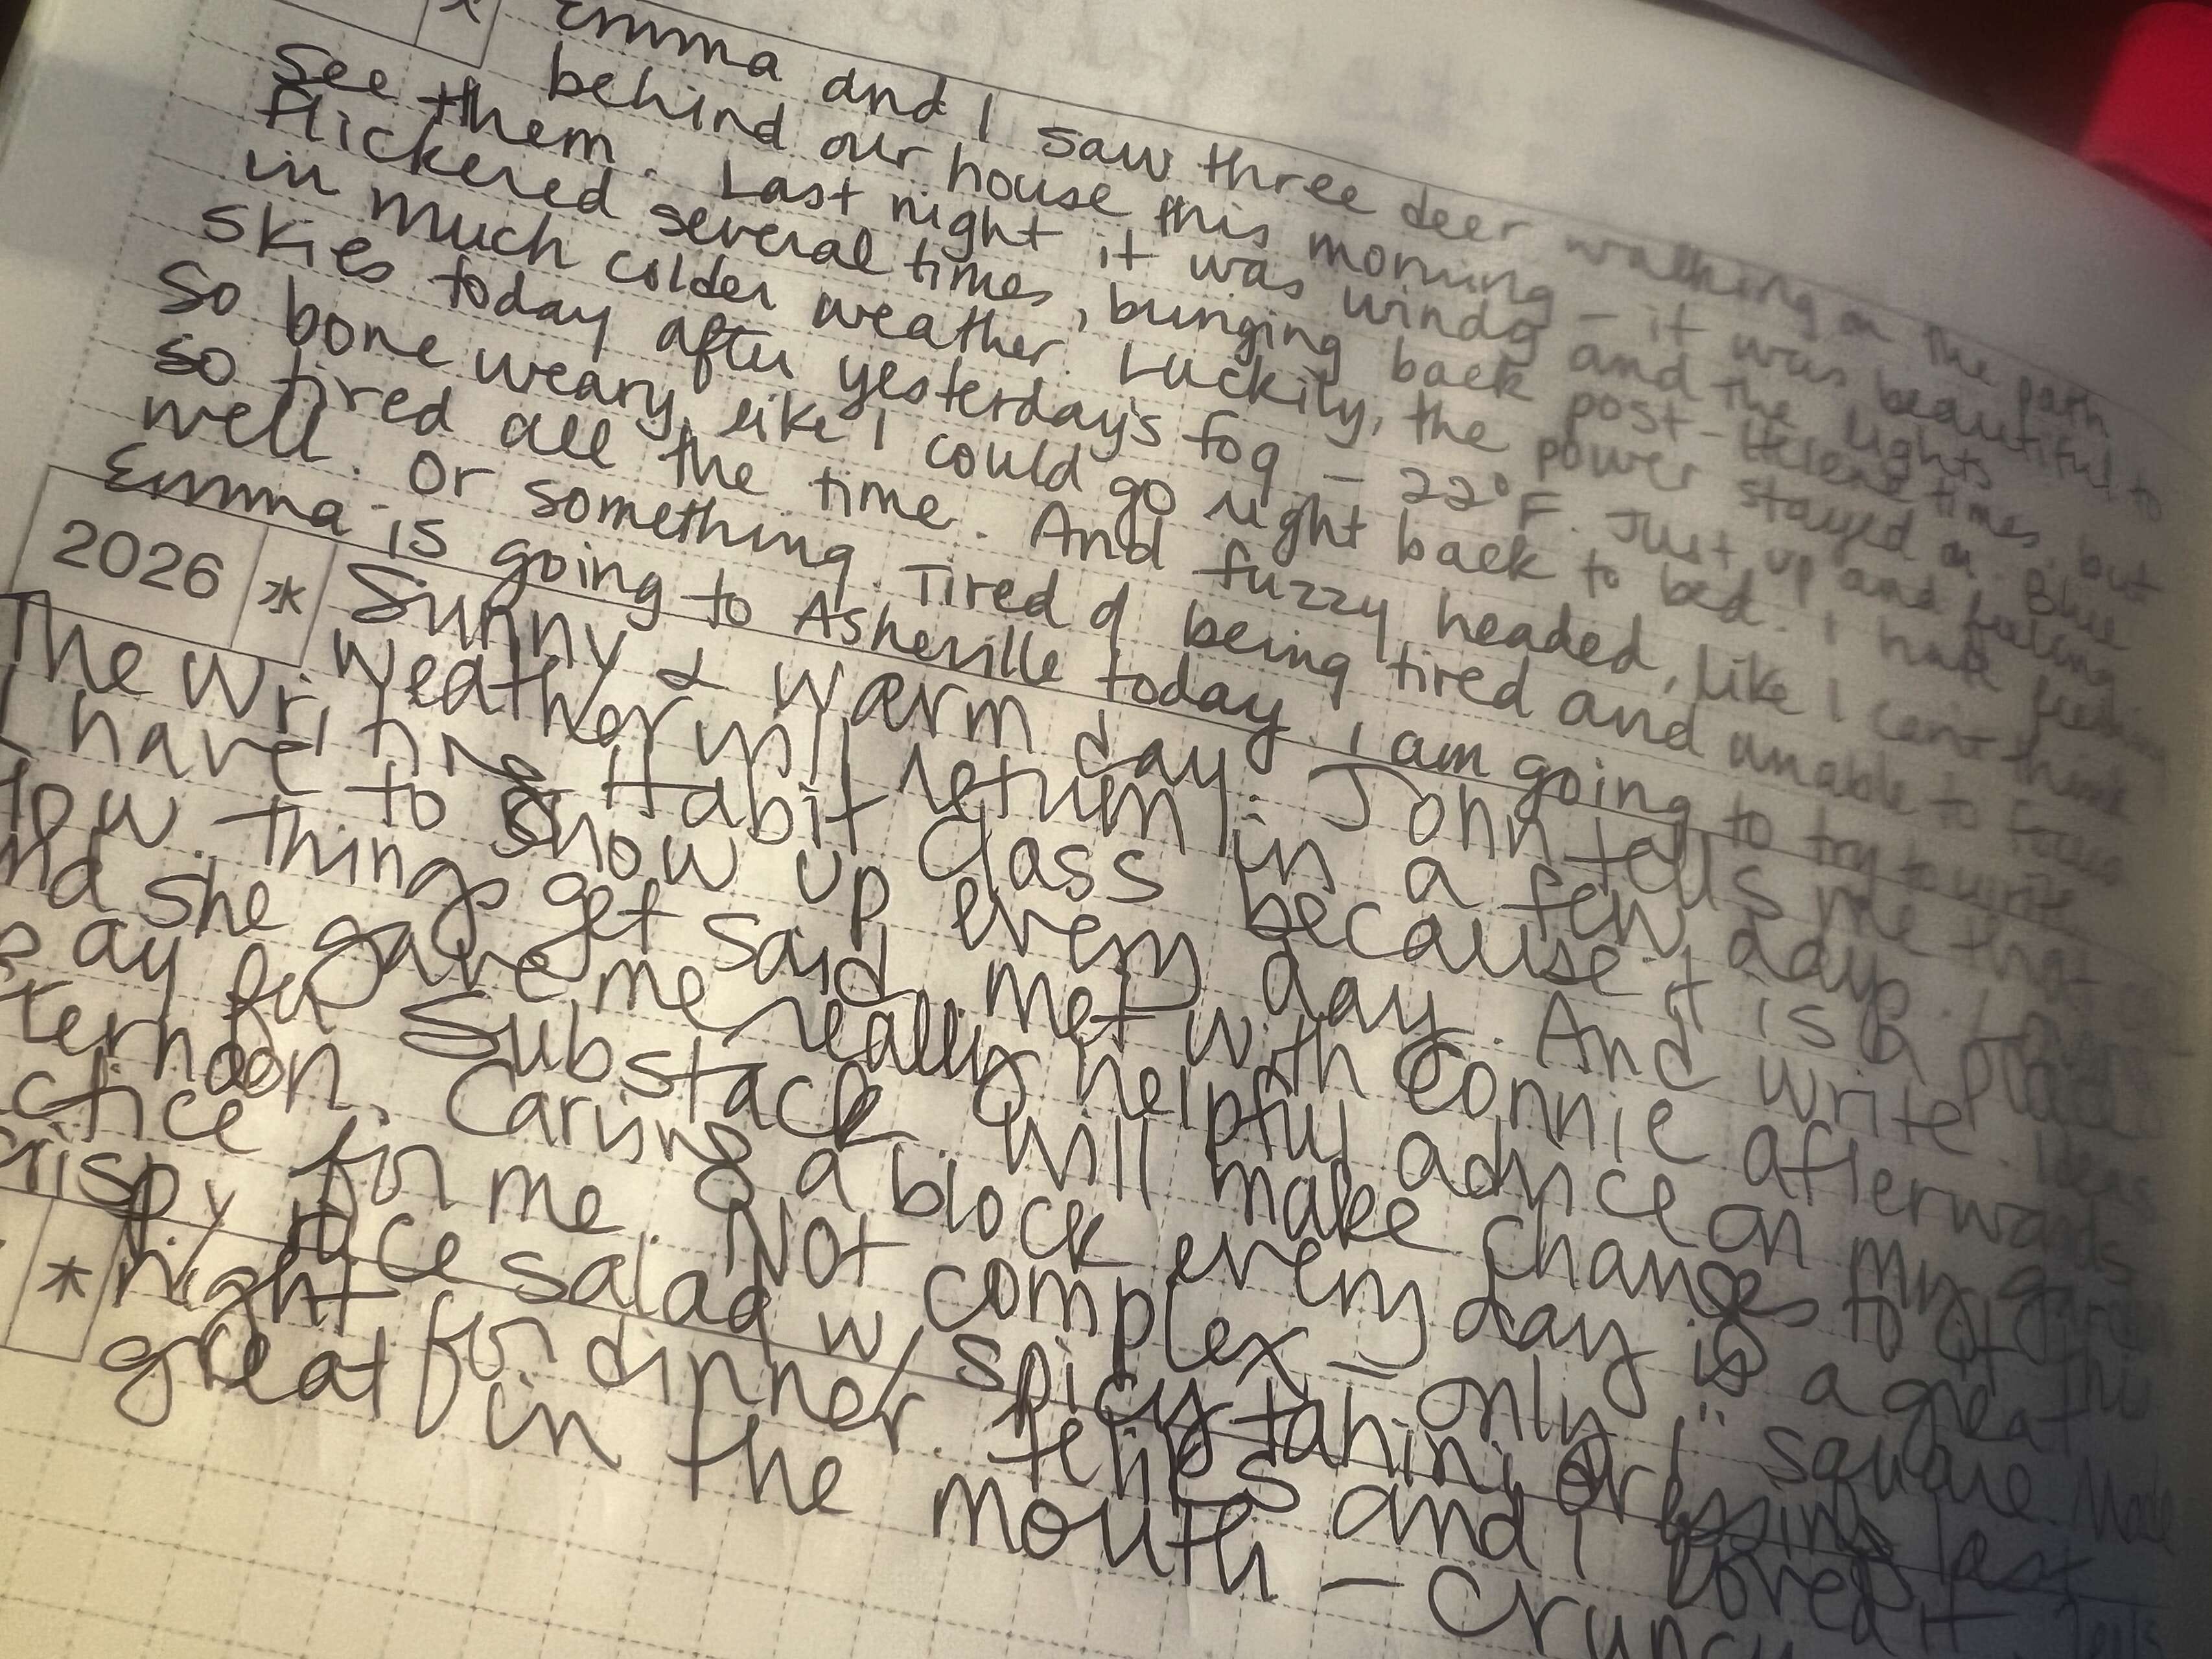 Emma and I saw three deer walking on the path
behind our house this morning – it was beautiful to
see them. Last night it was windy and the lights
flickered several times, bringing back post-Helene times, but
in much colder weather. Luckily, the power stayed on. Blue
skies today after yesterday's fog – 22°F. Just up and feeling
so bone weary, like I could go right back to bed. I hate feeling
so tired all the time. And fuzzy headed, like I can't think
well. Or something. Tired of being tired and unable to focus
Emma is going to Asheville today. I am going to try to write
2026
* Sunny & warm day. John tells me that
weather will return in a few days.
The Writing Habit class because it is a place
I have to show up every day. And write. Ideas
flow. Things get said. Met with Connie afterwards
and she gave me really helpful advice on my
ay for Substack. Will make changes to it this
ternoon. Carving a block every day is a great
ctice for me. Not complex – only 1" square. Made
crispy rice salad w/ spicy tahini dressing last
* night for dinner. and I loved it
great in the mouth –